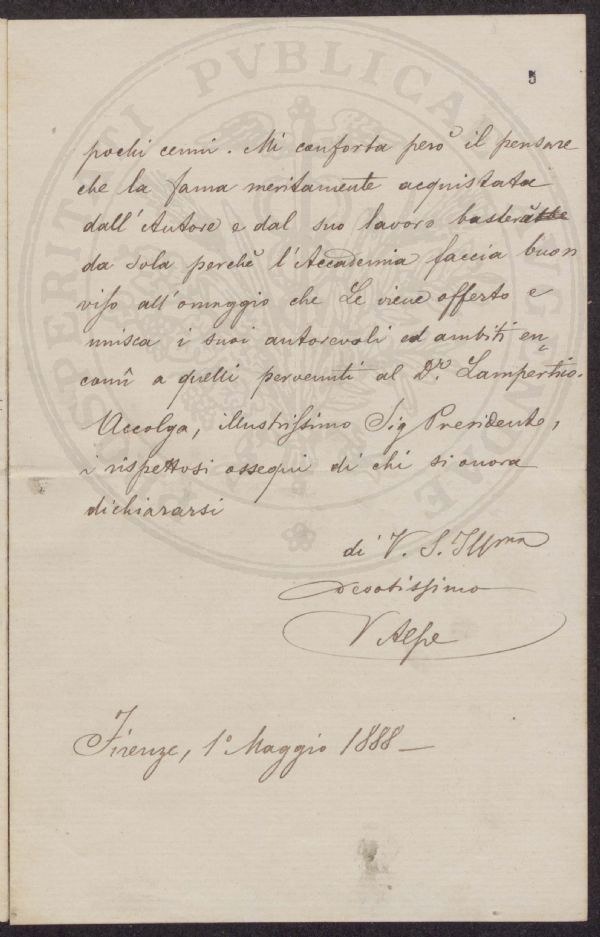 5
pochi cenni. Mi conforta però il pensare
che la fama meritamente acquistata
dall'Autore e dal suo lavoro basterà
da sola perchè l'Accademia faccia buon
viso all'omaggio che Le viene offerto e
unisca i suoi autorevoli ed ambiti en=
comî a quelli pervenuti al D.r Lampertico.
Accolga, illustrissimo Sig Presidente,
i rispettosi ossequi di chi si onora
dichiararsi
di V. S. Ill.ma
devotissimo
V Alpe
Firenze, 1° Maggio 1888 —